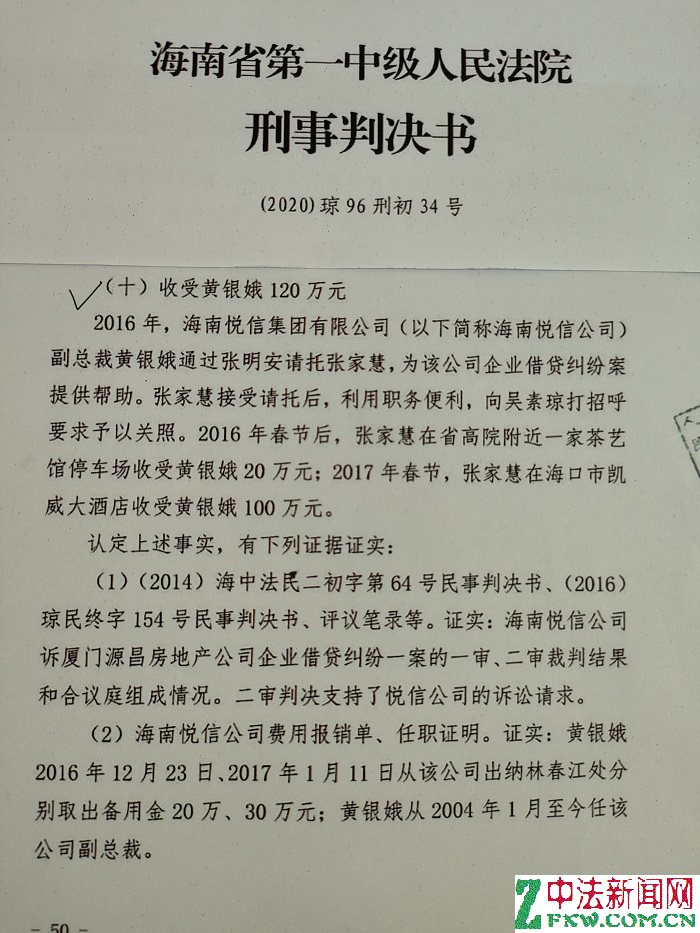 海南省第一中级人民法院
刑事判决书
(2020)琼 96 刑初 34 号
(十)收受黄银娥 120 万元
2016 年，海南悦信集团有限公司（以下简称海南悦信公司）
副总裁黄银娥通过张明安请托张家慧，为该公司企业借贷纠纷案
提供帮助。张家慧接受请托后，利用职务便利，向吴素琼打招呼
要求予以关照。2016 年春节后，张家慧在省高院附近一家茶艺
馆停车场收受黄银娥 20 万元；2017 年春节，张家慧在海口市凯
威大酒店收受黄银娥 100 万元。
认定上述事实，有下列证据证实：
(1)(2014)海中法民二初字第 64 号民事判决书、(2016)
琼民终字 154 号民事判决书、评议笔录等。证实：海南悦信公司
诉厦门源昌房地产公司企业借贷纠纷一案的一审、二审裁判结果
和合议庭组成情况。二审判决支持了悦信公司的诉讼请求。
(2) 海南悦信公司费用报销单、任职证明。证实：黄银娥
2016 年 12 月 23 日、2017 年 1 月 11 日从该公司出纳林春江处分
别取出备用金 20 万、30 万元；黄银娥从 2004 年 1 月至今任该
公司副总裁。
- 50 -
中法新闻网
ZFXW.COM.CN